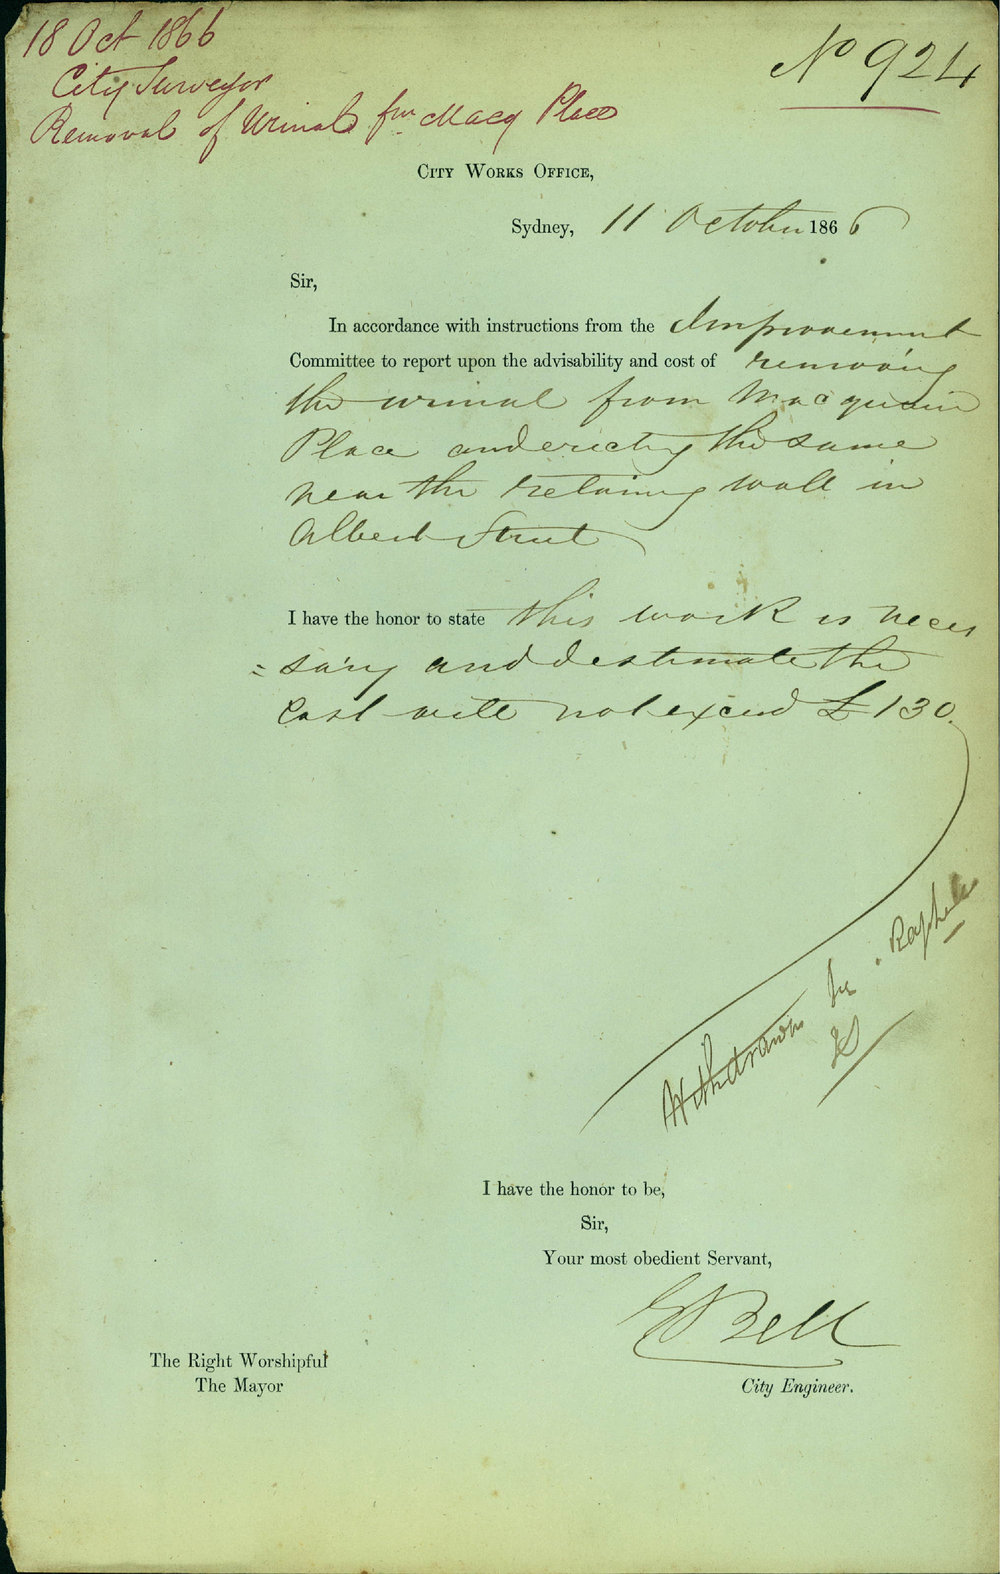 18 Oct 1866
City Surveyor
Removal of Urinals frm Macq Place
No 924
City Works Office,
Sydney, 11 October 1866
Sir,
In accordance with instructions from the Improvement
Committee to report upon the advisability and cost of removing
the urinal from Macquarie
Place and erecting the same
near the retaining wall in
Albert Street
I have the honor to state this work is neces
= sary and I estimate the
cost will not exceed £130.
Withdrawn
Raphael
I have the honor to be,
Sir,
Your most obedient Servant,
E Bell
City Engineer.
The Right Worshipful
The Mayor